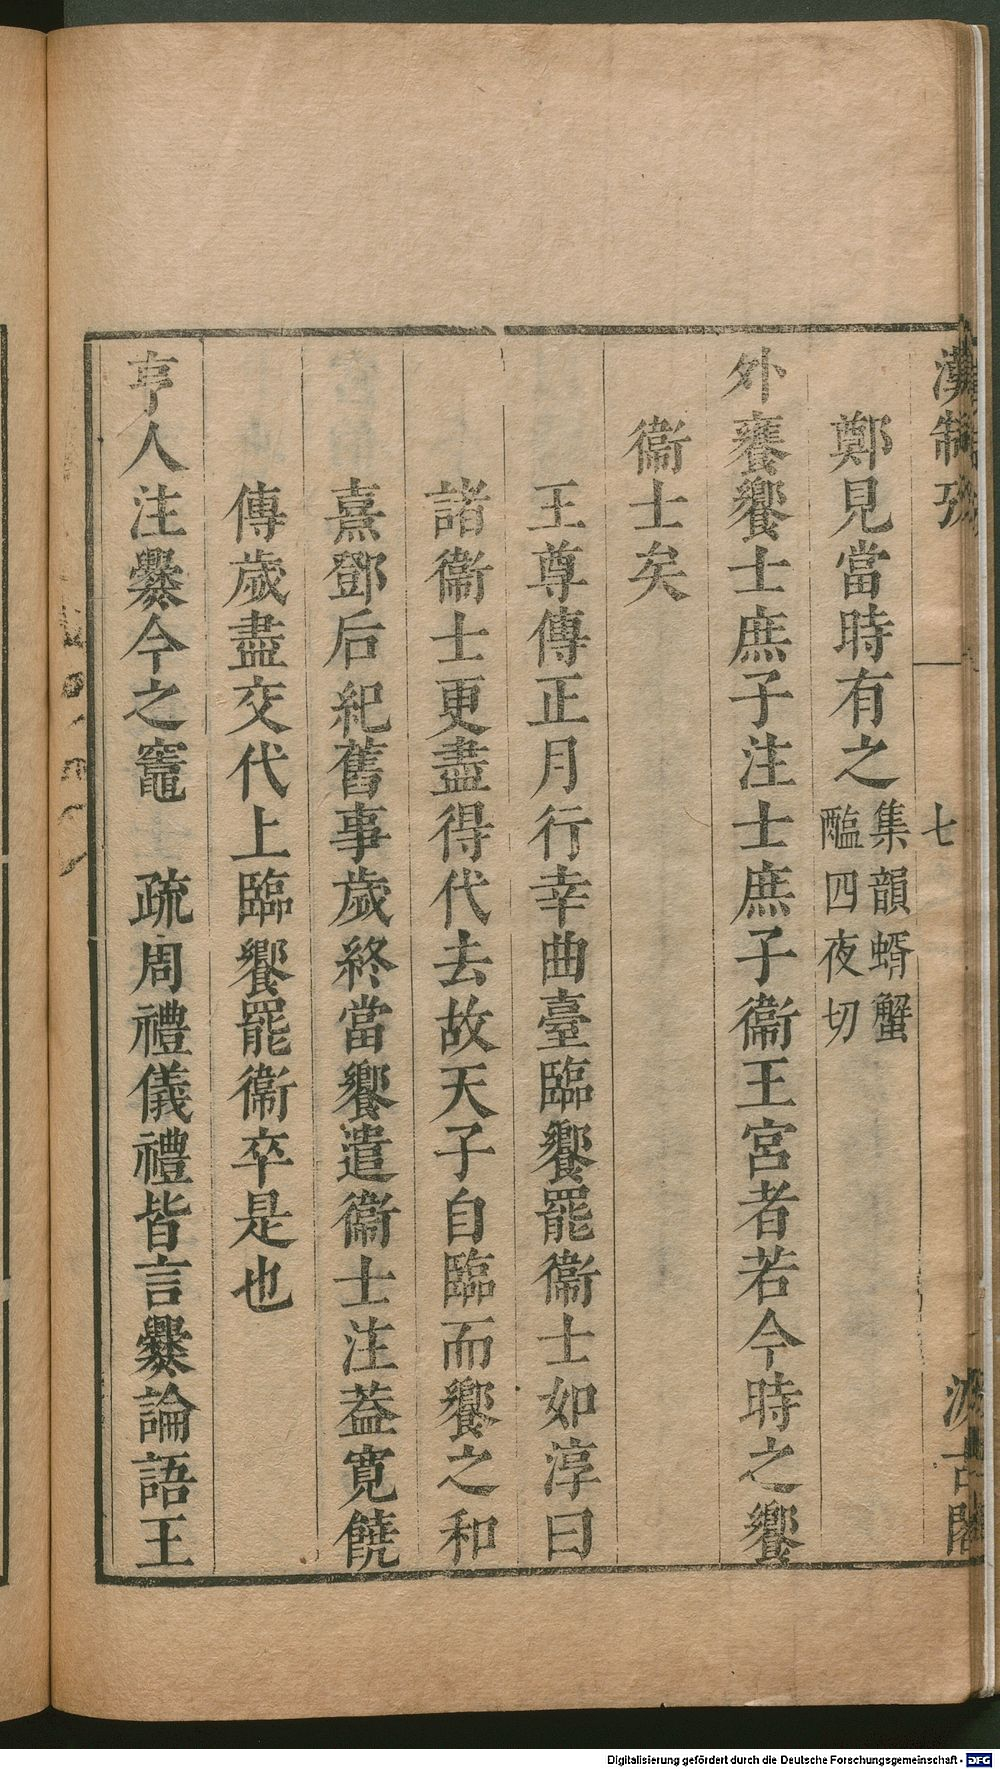 漢制攷
七
汲古閣
鄭見當時有之集韻蝑蟹䣧四夜切
外饔饗士庶子注士庶子衞王宮者若今時之饗
衞士矣
王尊傳正月行幸曲臺臨饗罷衞士如淳曰
諸衞士更盡得代去故天子自臨而饗之和
熹鄧后紀舊事歲終當饗遣衞士注葢寬饒
傳歲盡交代上臨饗罷衞卒是也
亨人注爨今之竈　疏周禮儀禮皆言爨論語王
Digitalisierung gefördert durch die Deutsche Forschungsgemeinschaft - DFG